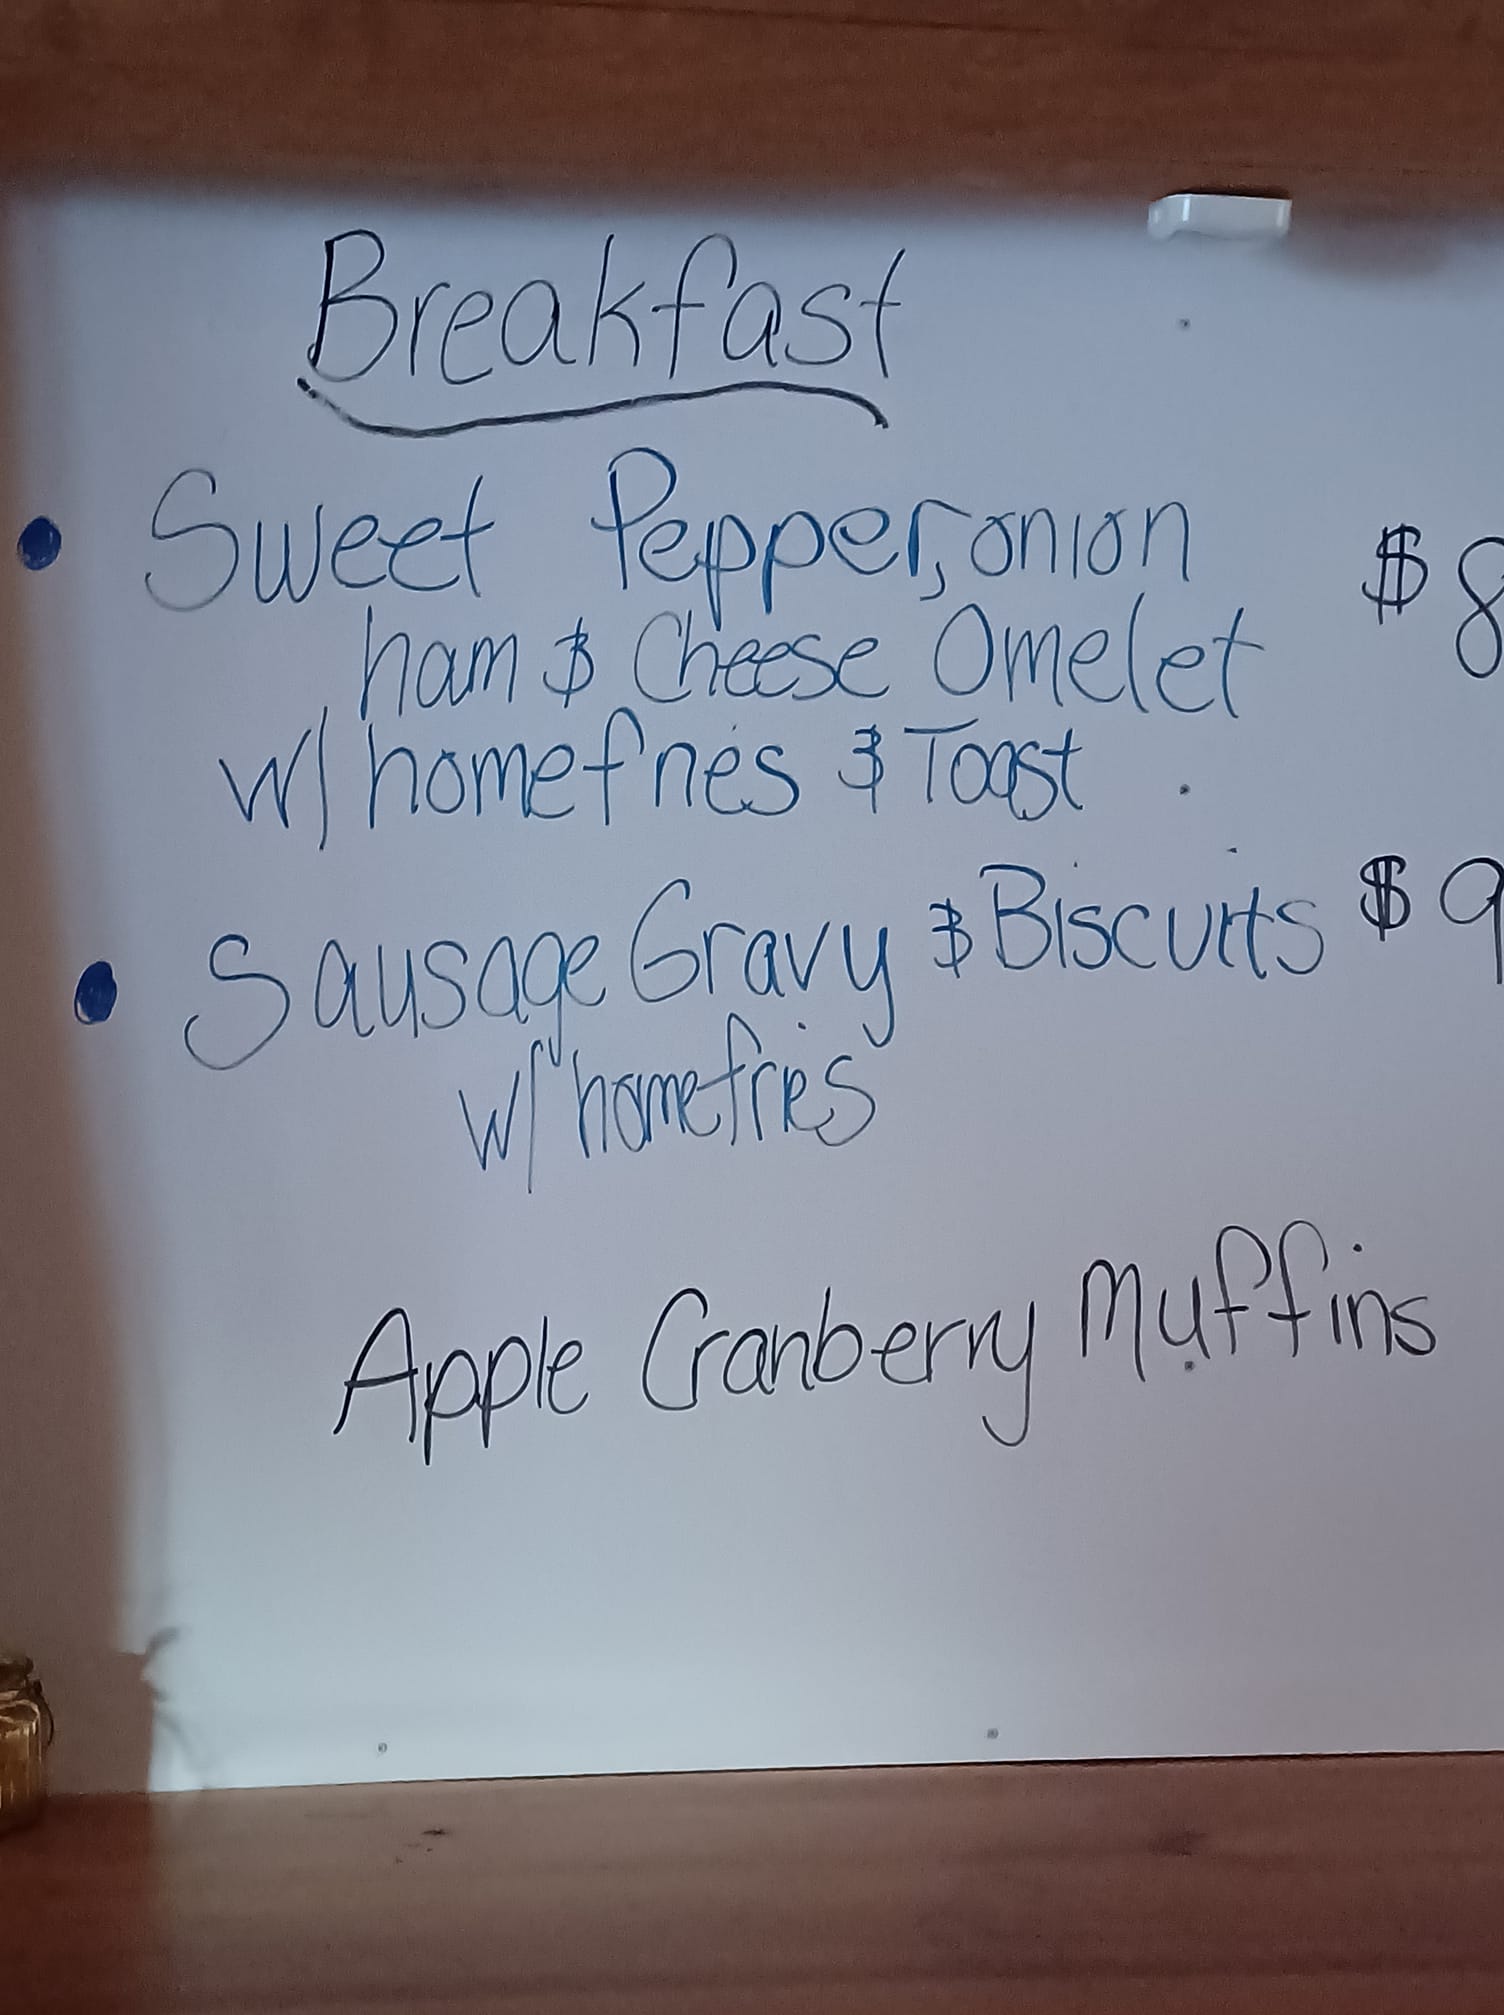 Breakfast
• Sweet Pepper, onion $8
ham & Cheese Omelet
w/ homefries & Toast
• Sausage Gravy & Biscuits $9
w/ homefries
Apple Cranberry Muffins